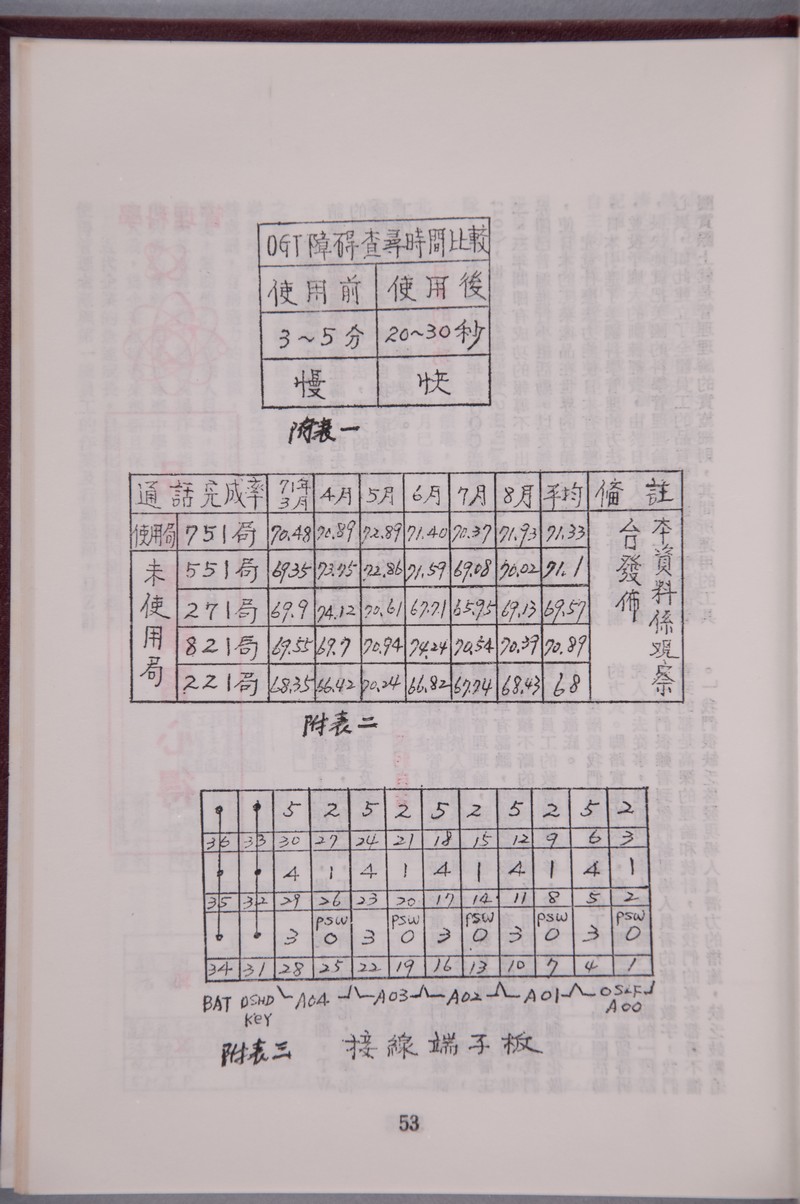 OGT障碍查尋時間比較
使用前 使用後
3～5分 20～30秒
慢 快
附表一
通話完成率 71年3月 4月 5月 6月 7月 8月 平均 備註
使用局 751局 70.48 70.89 72.89 71.40 70.37 71.93 71.33 本資料係观察台發佈
未使用局 551局 69.35 73.75 72.86 71.59 69.08 70.02 71.1
271局 69.9 74.12 70.61 67.71 65.95 69.13 69.57
821局 69.55 69.7 70.94 74.24 70.54 70.39 70.89
221局 68.35 66.42 70.24 66.82 67.74 68.43 68
附表二
5 2 5 2 5 2 5 2 5 2
36 33 30 27 24 21 18 15 12 9 6 3
4 1 4 1 4 1 4 1 4 1
35 32 29 26 23 20 17 14 11 8 5 2
PSW PSW PSW PSW PSW
3 0 3 0 3 0 3 0 3 0
34 31 28 25 22 19 16 13 10 7 4 1
BAT A04 A03 A02 A01
KEY A00
附表三 接線端子板
53